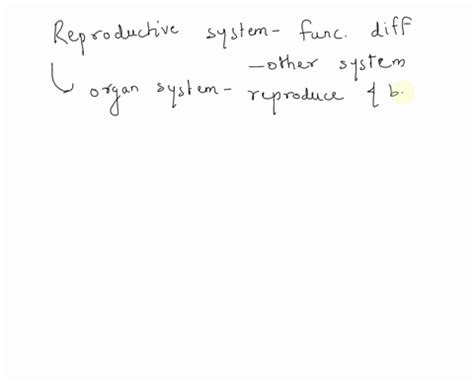 Reproductive system- func. diff
-other system
organ system- reproduce & b.